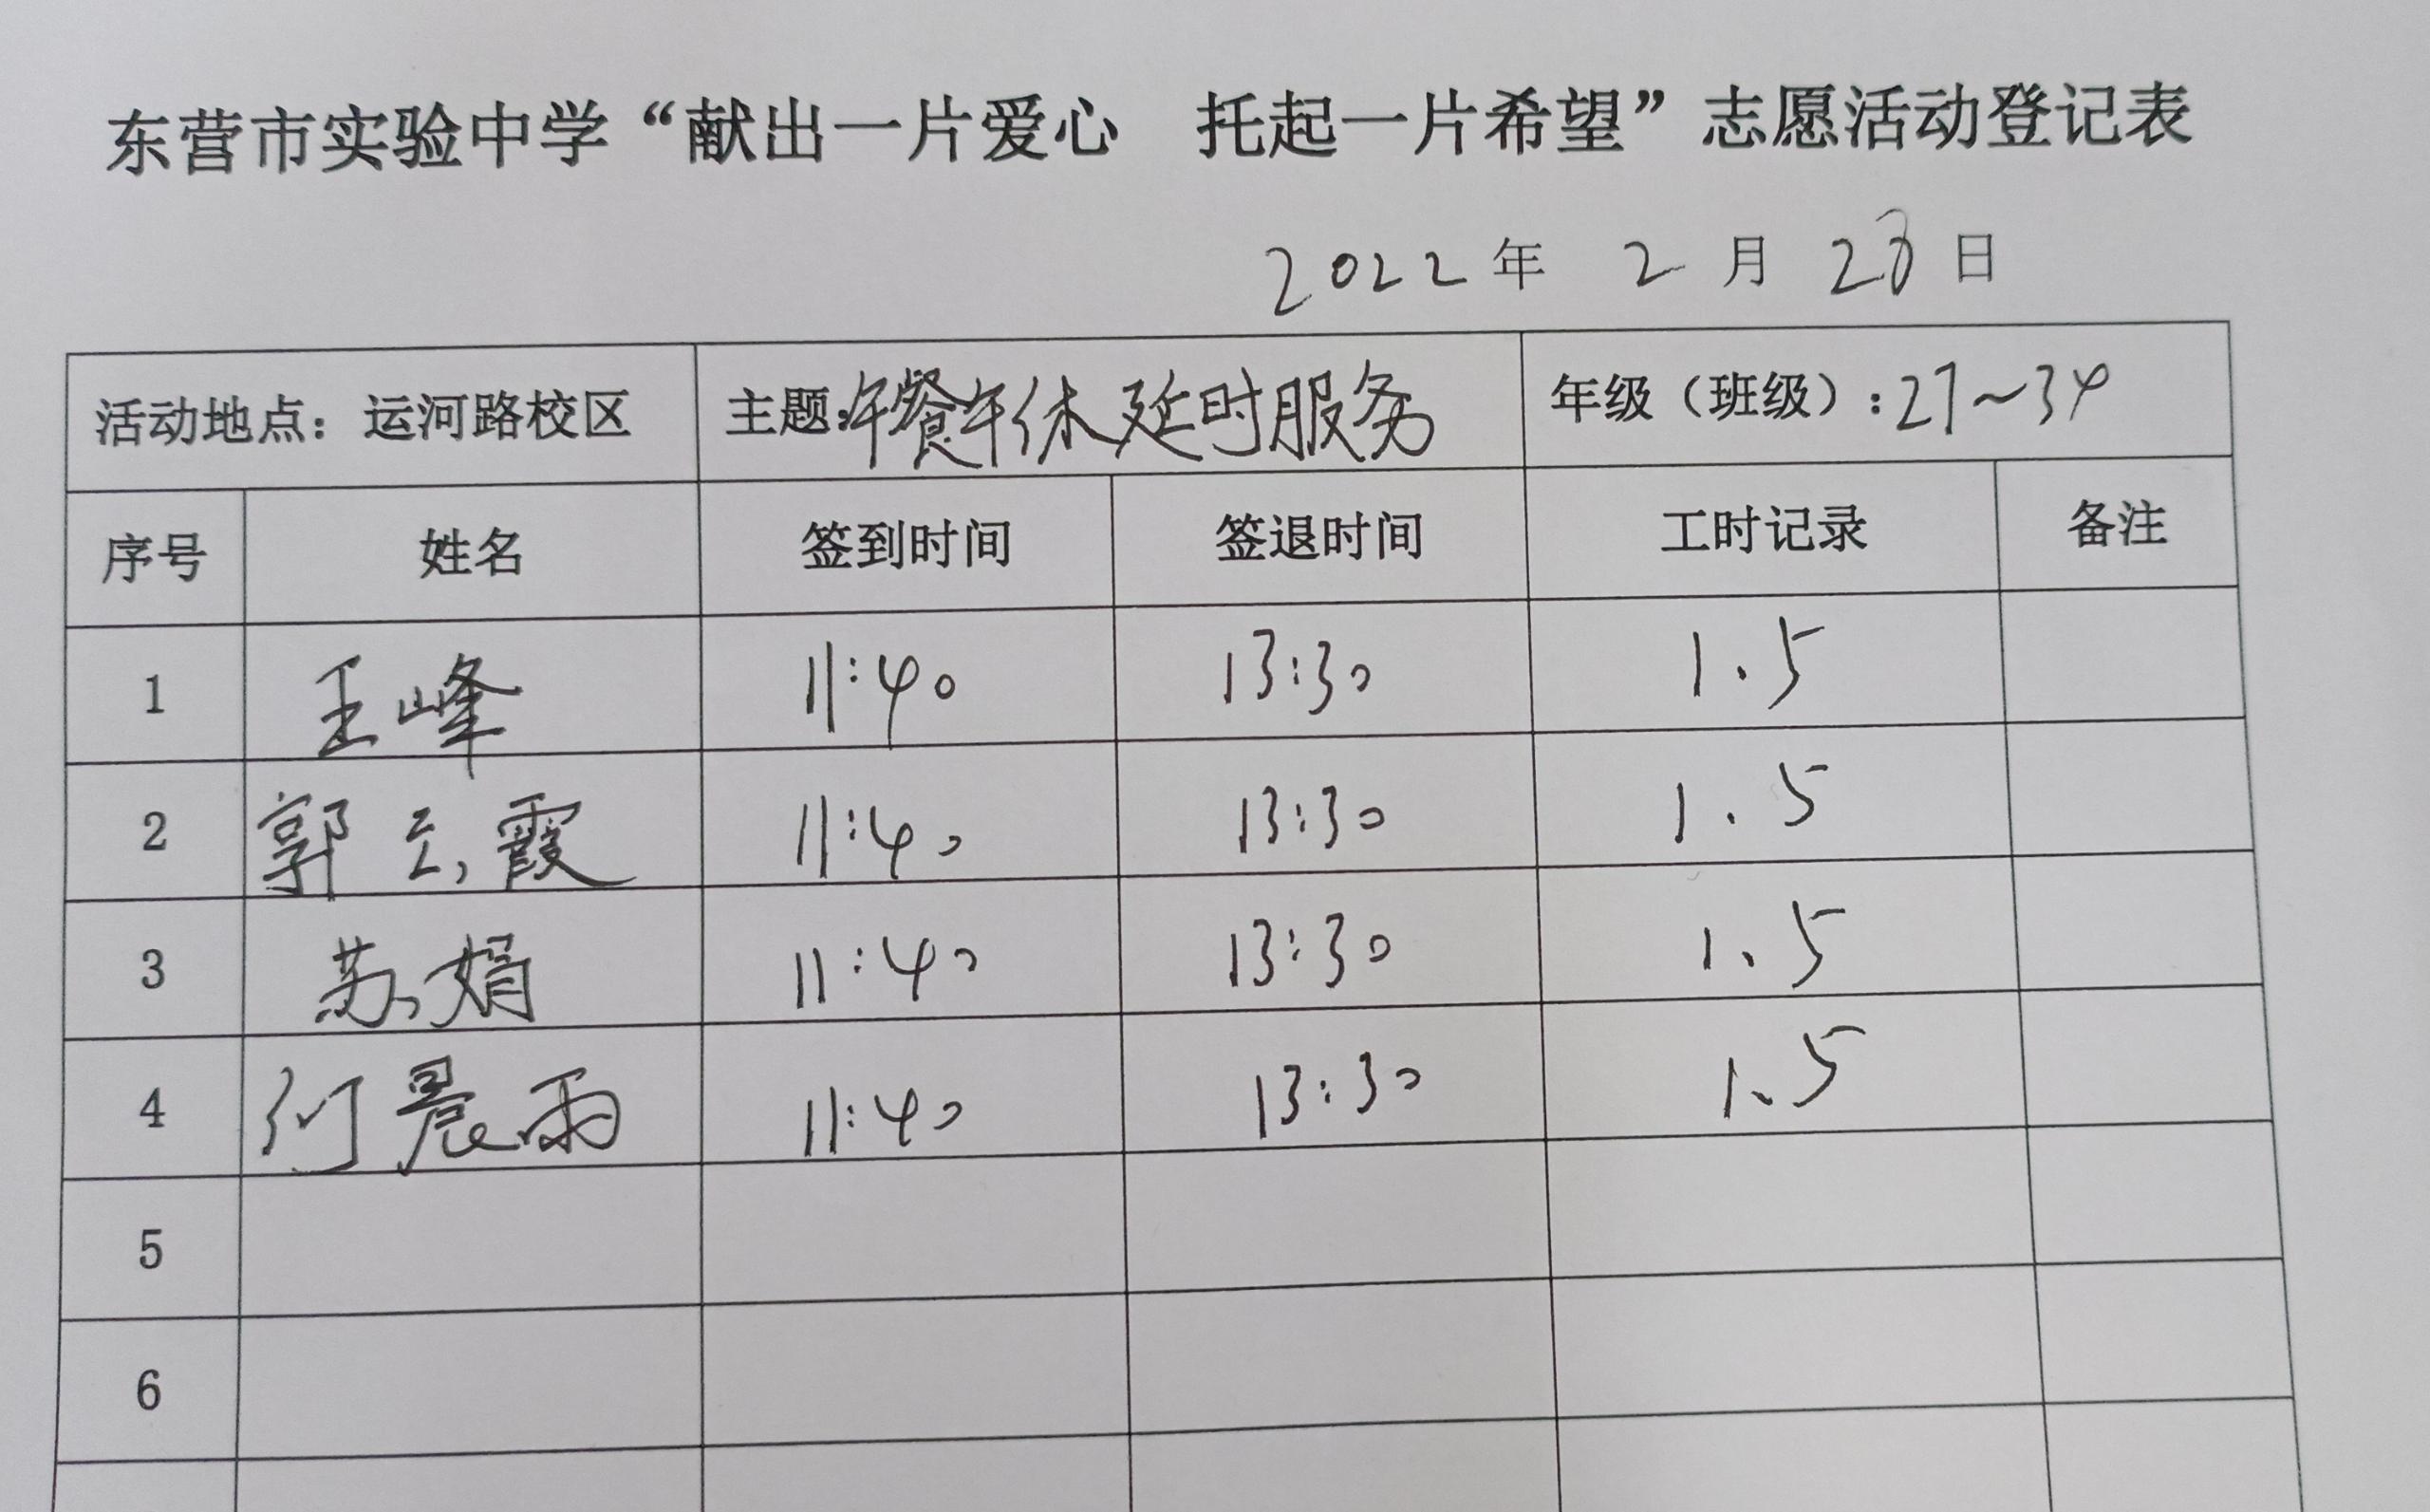 东营市实验中学“献出一片爱心 托起一片希望”志愿活动登记表
2022年 2月 28日
活动地点：运河路校区 主题：午餐午休延时服务 年级（班级）：27~34
序号 姓名 签到时间 签退时间 工时记录 备注
1 王峰 11:40 13:30 1.5
2 郭云霞 11:40 13:30 1.5
3 苏娟 11:40 13:30 1.5
4 何晨雨 11:40 13:30 1.5
5
6